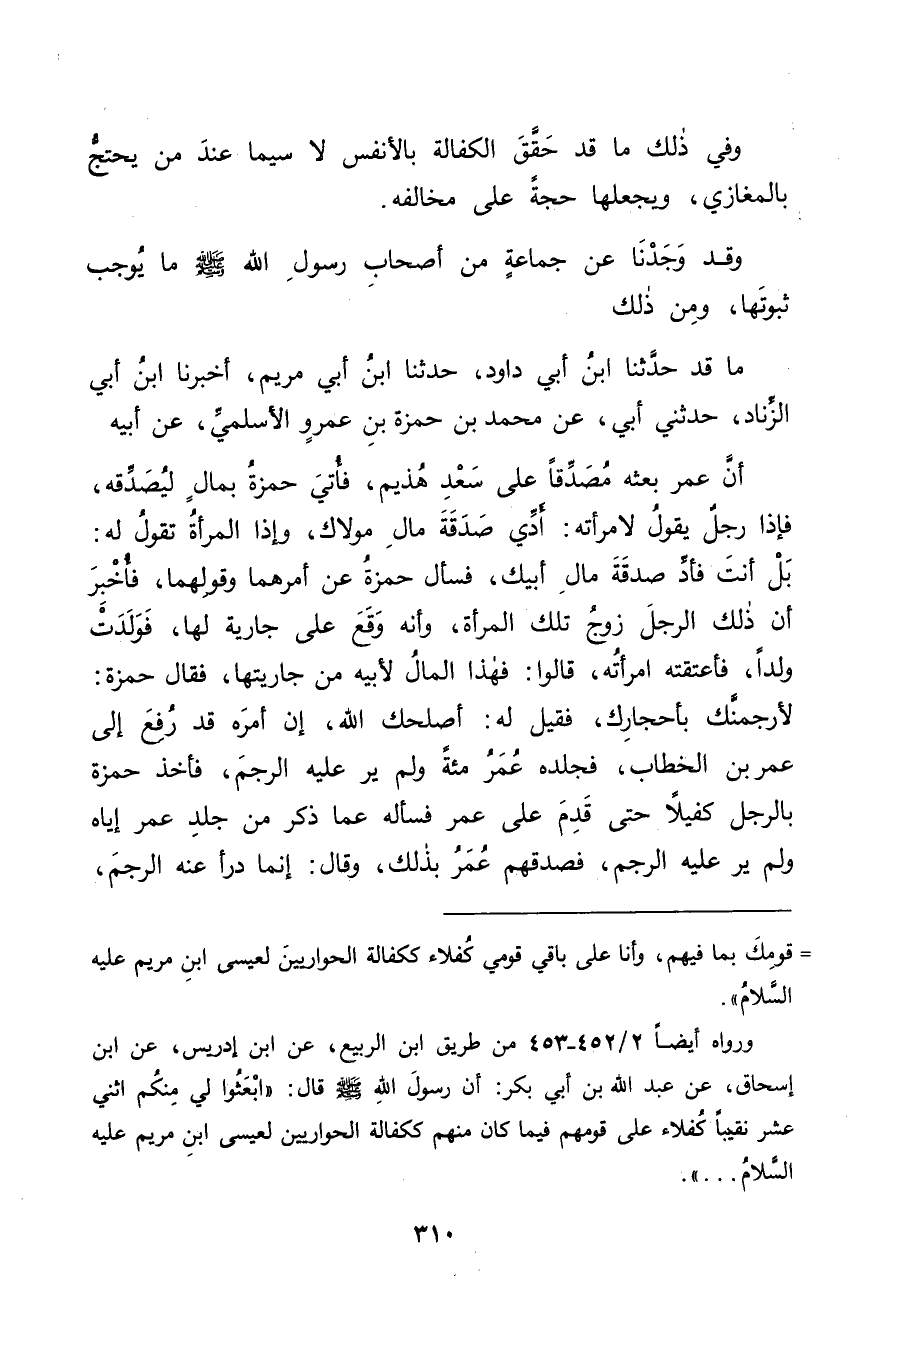 وفي ذٰلك ما قد حَقَّقَ الكفالة بالأنفس لا سيما عندَ من يحتجُّ
بالمغازي، ويجعلها حجةً على مخالفه.
وقد وَجَدْنَا عن جماعةٍ من أصحابِ رسولِ الله ﷺ ما يُوجب
ثبوتَها، ومِن ذٰلك
ما قد حدَّثنا ابنُ أبي داود، حدثنا ابنُ أبي مريم، أخبرنا ابنُ أبي
الزِّناد، حدثني أبي، عن محمد بن حمزة بنِ عمروٍ الأسلميِّ، عن أبيه
أنَّ عمر بعثه مُصَدِّقاً على سَعْدِ هُذيم، فأُتيَ حمزةُ بمالٍ ليُصَدِّقه،
فإذا رجلٌ يقولُ لامرأته: أَدِّي صَدَقَةَ مالِ مولاك، وإذا المرأةُ تقولُ له:
بَلْ أنتَ فأدِّ صدقَةَ مالِ أبيك، فسأل حمزةُ عن أمرهما وقولِهما، فأُخْبِرَ
أن ذٰلك الرجلَ زوجُ تلك المرأة، وأنه وَقَعَ على جارية لها، فَوَلَدَتْ
ولداً، فأعتقته امرأتُه، قالوا: فهٰذا المالُ لأبيه من جاريتها، فقال حمزة:
لأرجمنَّك بأحجارِك، فقيل له: أصلحك الله، إن أمرَه قد رُفِعَ إلى
عمر بن الخطاب، فجلده عُمَرُ مئةً ولم ير عليه الرجمَ، فأخذ حمزة
بالرجل كفيلاً حتى قَدِمَ على عمر فسأله عما ذكر من جلدِ عمر إياه
ولم ير عليه الرجم، فصدقهم عُمَرُ بذٰلك، وقال: إنما درأ عنه الرجمَ،
= قومِكَ بما فيهم، وأنا على باقي قومي كُفلاء ككفالة الحواريينَ لعيسى ابنِ مريم عليه
السَّلامُ».
ورواه أيضاً ٤٥٢/٢-٤٥٣ من طريق ابن الربيع، عن ابن إدريس، عن ابن
إسحاق، عن عبد الله بن أبي بكر: أن رسولَ اللهِ ﷺ قال: «ابْعَثُوا لي مِنكُم اثني
عشر نقيباً كُفلاء على قومهم فيما كان منهم ككفالة الحواريين لعيسى ابنِ مريم عليه
السَّلامُ...».
٣١٠